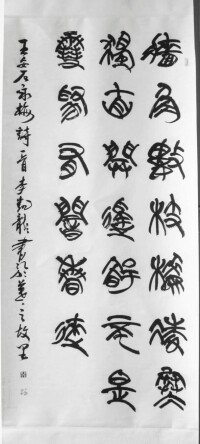 牆角數枝梅凌寒
獨自開遙知不是
雪為有暗香來
王安石詠梅詩一首李龍書於羲之故里